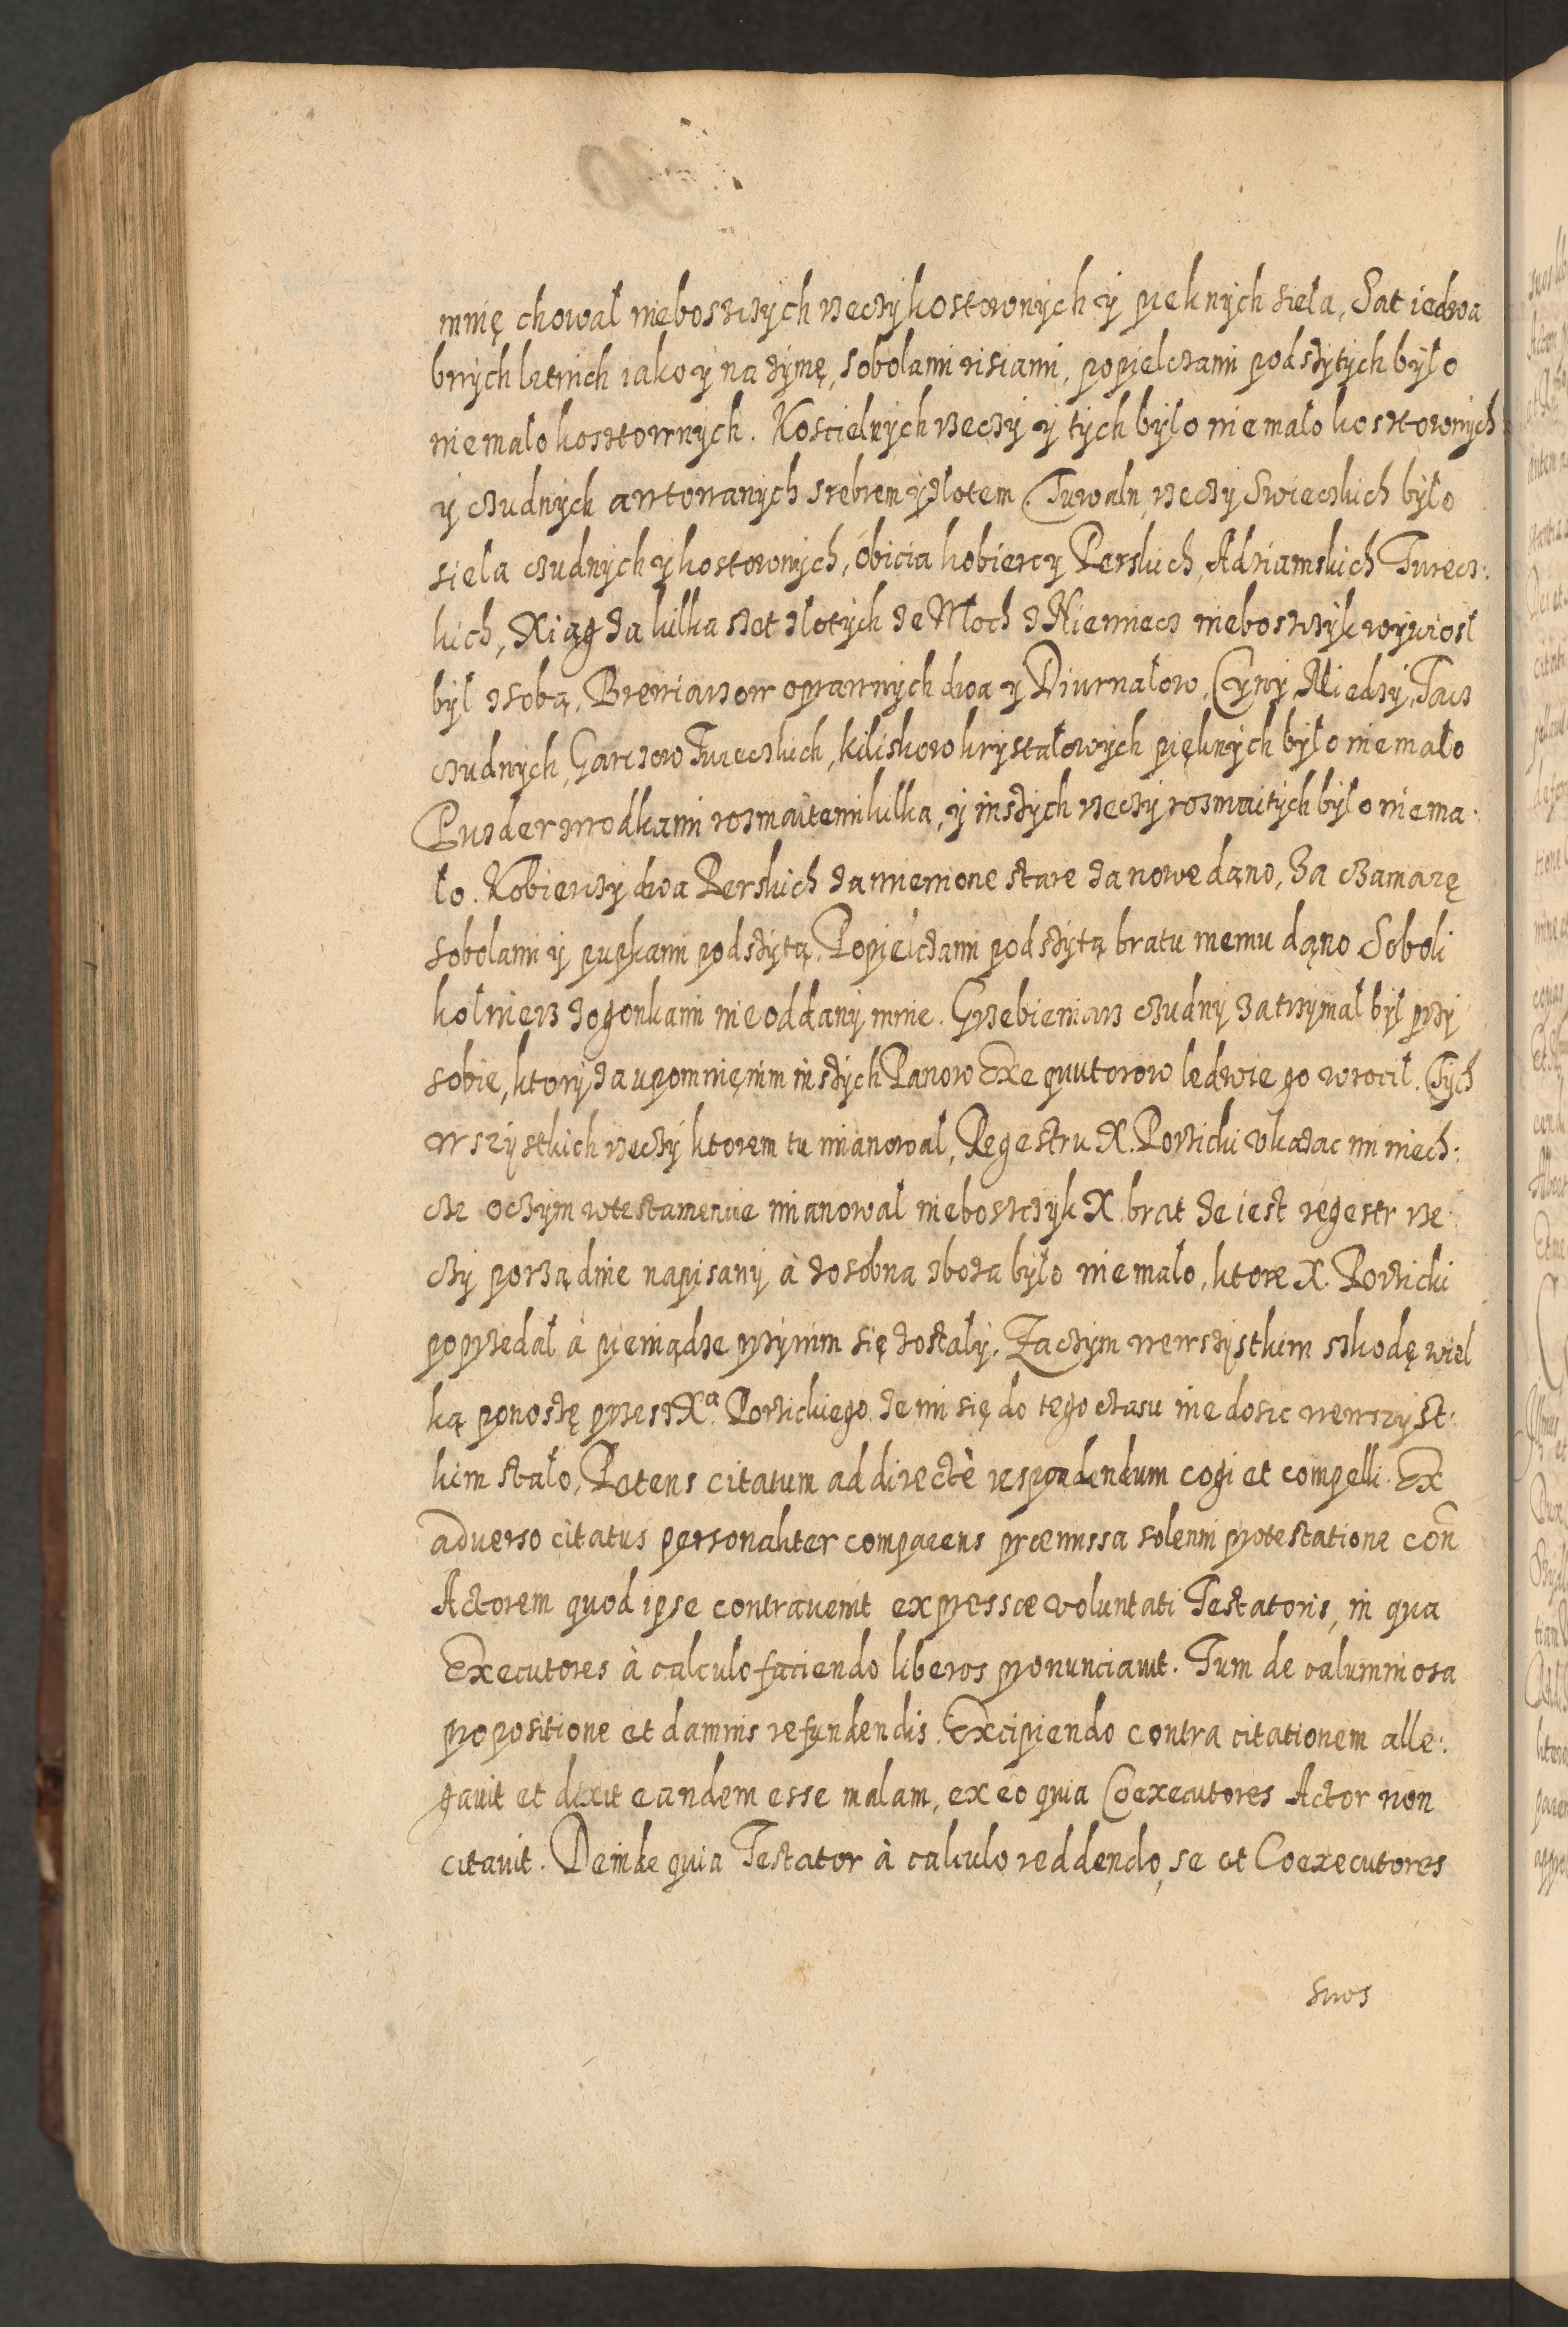 mnię chował nieboszczych rzeczy kosztownych y pieknych sieła, Szat iedwa
bnych letnich iako y na zymę, sobolami risiami, popielczami podszytych było
niemało kosztownych. Koscielnych rzeczy y tych było niemało kosztownych
y czudnych awtowanych srebrem y złotem Tuwaln, rzeczy Swieczkich było
sieła czudnych y kosztownych, obicia kobiercy Perskich, Adziamskich Turecz:
kich, Xiąg za kilka szet złotych ze Włoch z Niemiecz nieboszczyk wywiosł
był z sobą, Brewiarzow oprawnych dwa y Diurnałow, Cyny, Miedzy, Tacz
czudnych, Garczow Tureczkich, kiliszkow kryształowych pięknych było niemało
Puzder z wodkami rozmaitemi kilka, y inszych rzeczy rozmaitych było niema:
ło. Kobierczy dwa Perskich zamienione stare za nowe dąno, Za czamarę
sobolami y pupkami podszytą, Popielczami podszytą bratu memu dąno Soboli
kołnierz z ogonkami nie oddany mnie. Grzebieniarz czudny zatrzymał był przy
sobie, ktory za upomnięnim inszych Panow Exequutorow ledwie go wrocił. Tych
wszystkich rzeczy ktorem tu mianował, Regestru X. Powsicki ukazac mi niech:
cze oczym w testamencie mianował nieboszczyk X. brat ze iest regestr rze
czy porządnie napisany à zosobna zboza było niemało, ktore X. Powsicki
poprzedał à pieniądze przynim się zostały. Zaczym wewszystkim szkodę wiel
ką ponoszę przesz Xa. Powsickiego, ze mi się do tego czasu nie dosic wewszyst:
kim stało, Petens citatum ad directè respondendum cogi et compelli. Ex
aduerso citatus personaliter comparens præmissa solenni protestatione con
Actorem quod ipse contrauenit expressæ voluntati Testatoris, in qua
Executores à calculo faciendo liberos pronunciauit. Tum de calumniosa
propositione et damnis refundendis. Excipiendo contra citationem alle:
gauit et dixit eandem esse malam, ex eo quia Coexecutores Actor non
citauit. Deinde quia Testator à calculo reddendo, se et Coexecutores
suos